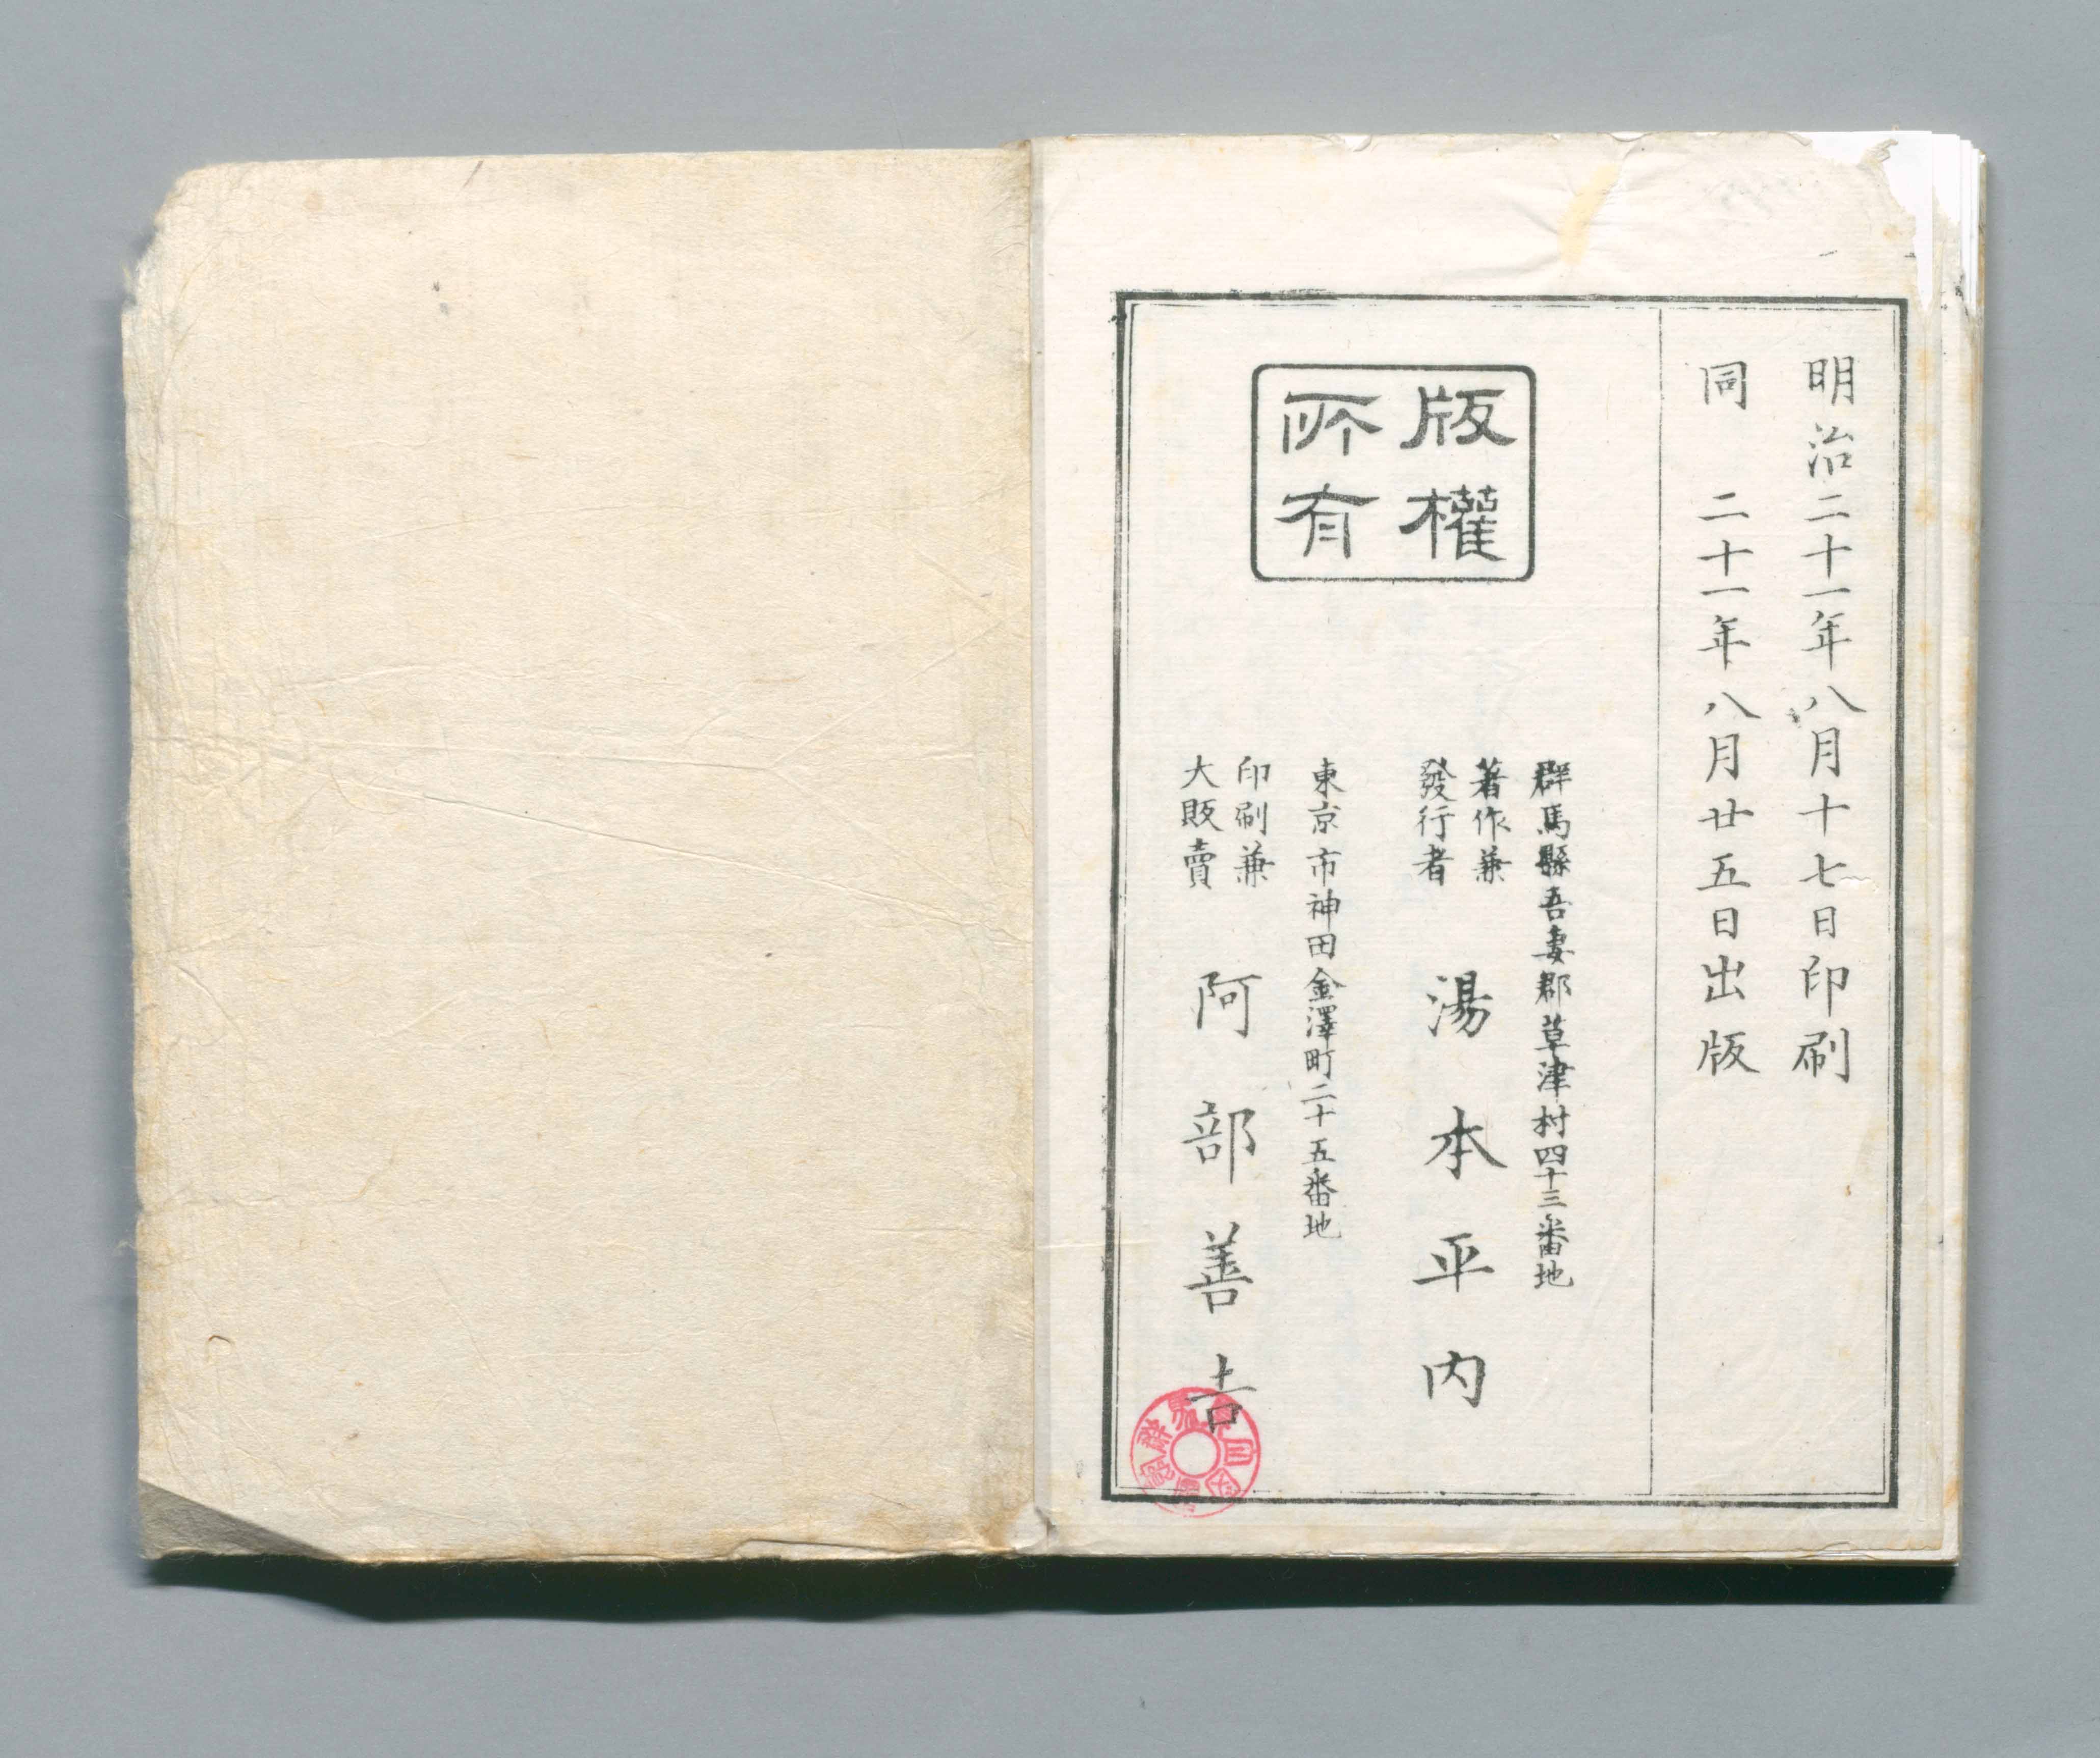 明治二十一年八月十七日印刷
同 二十一年八月廿五日出版
版權
所有
群馬縣吾妻郡草津村四十三番地
著作兼
發行者
湯本平内
東京市神田金澤町二十五番地
印刷兼
大販賣
阿部善吉